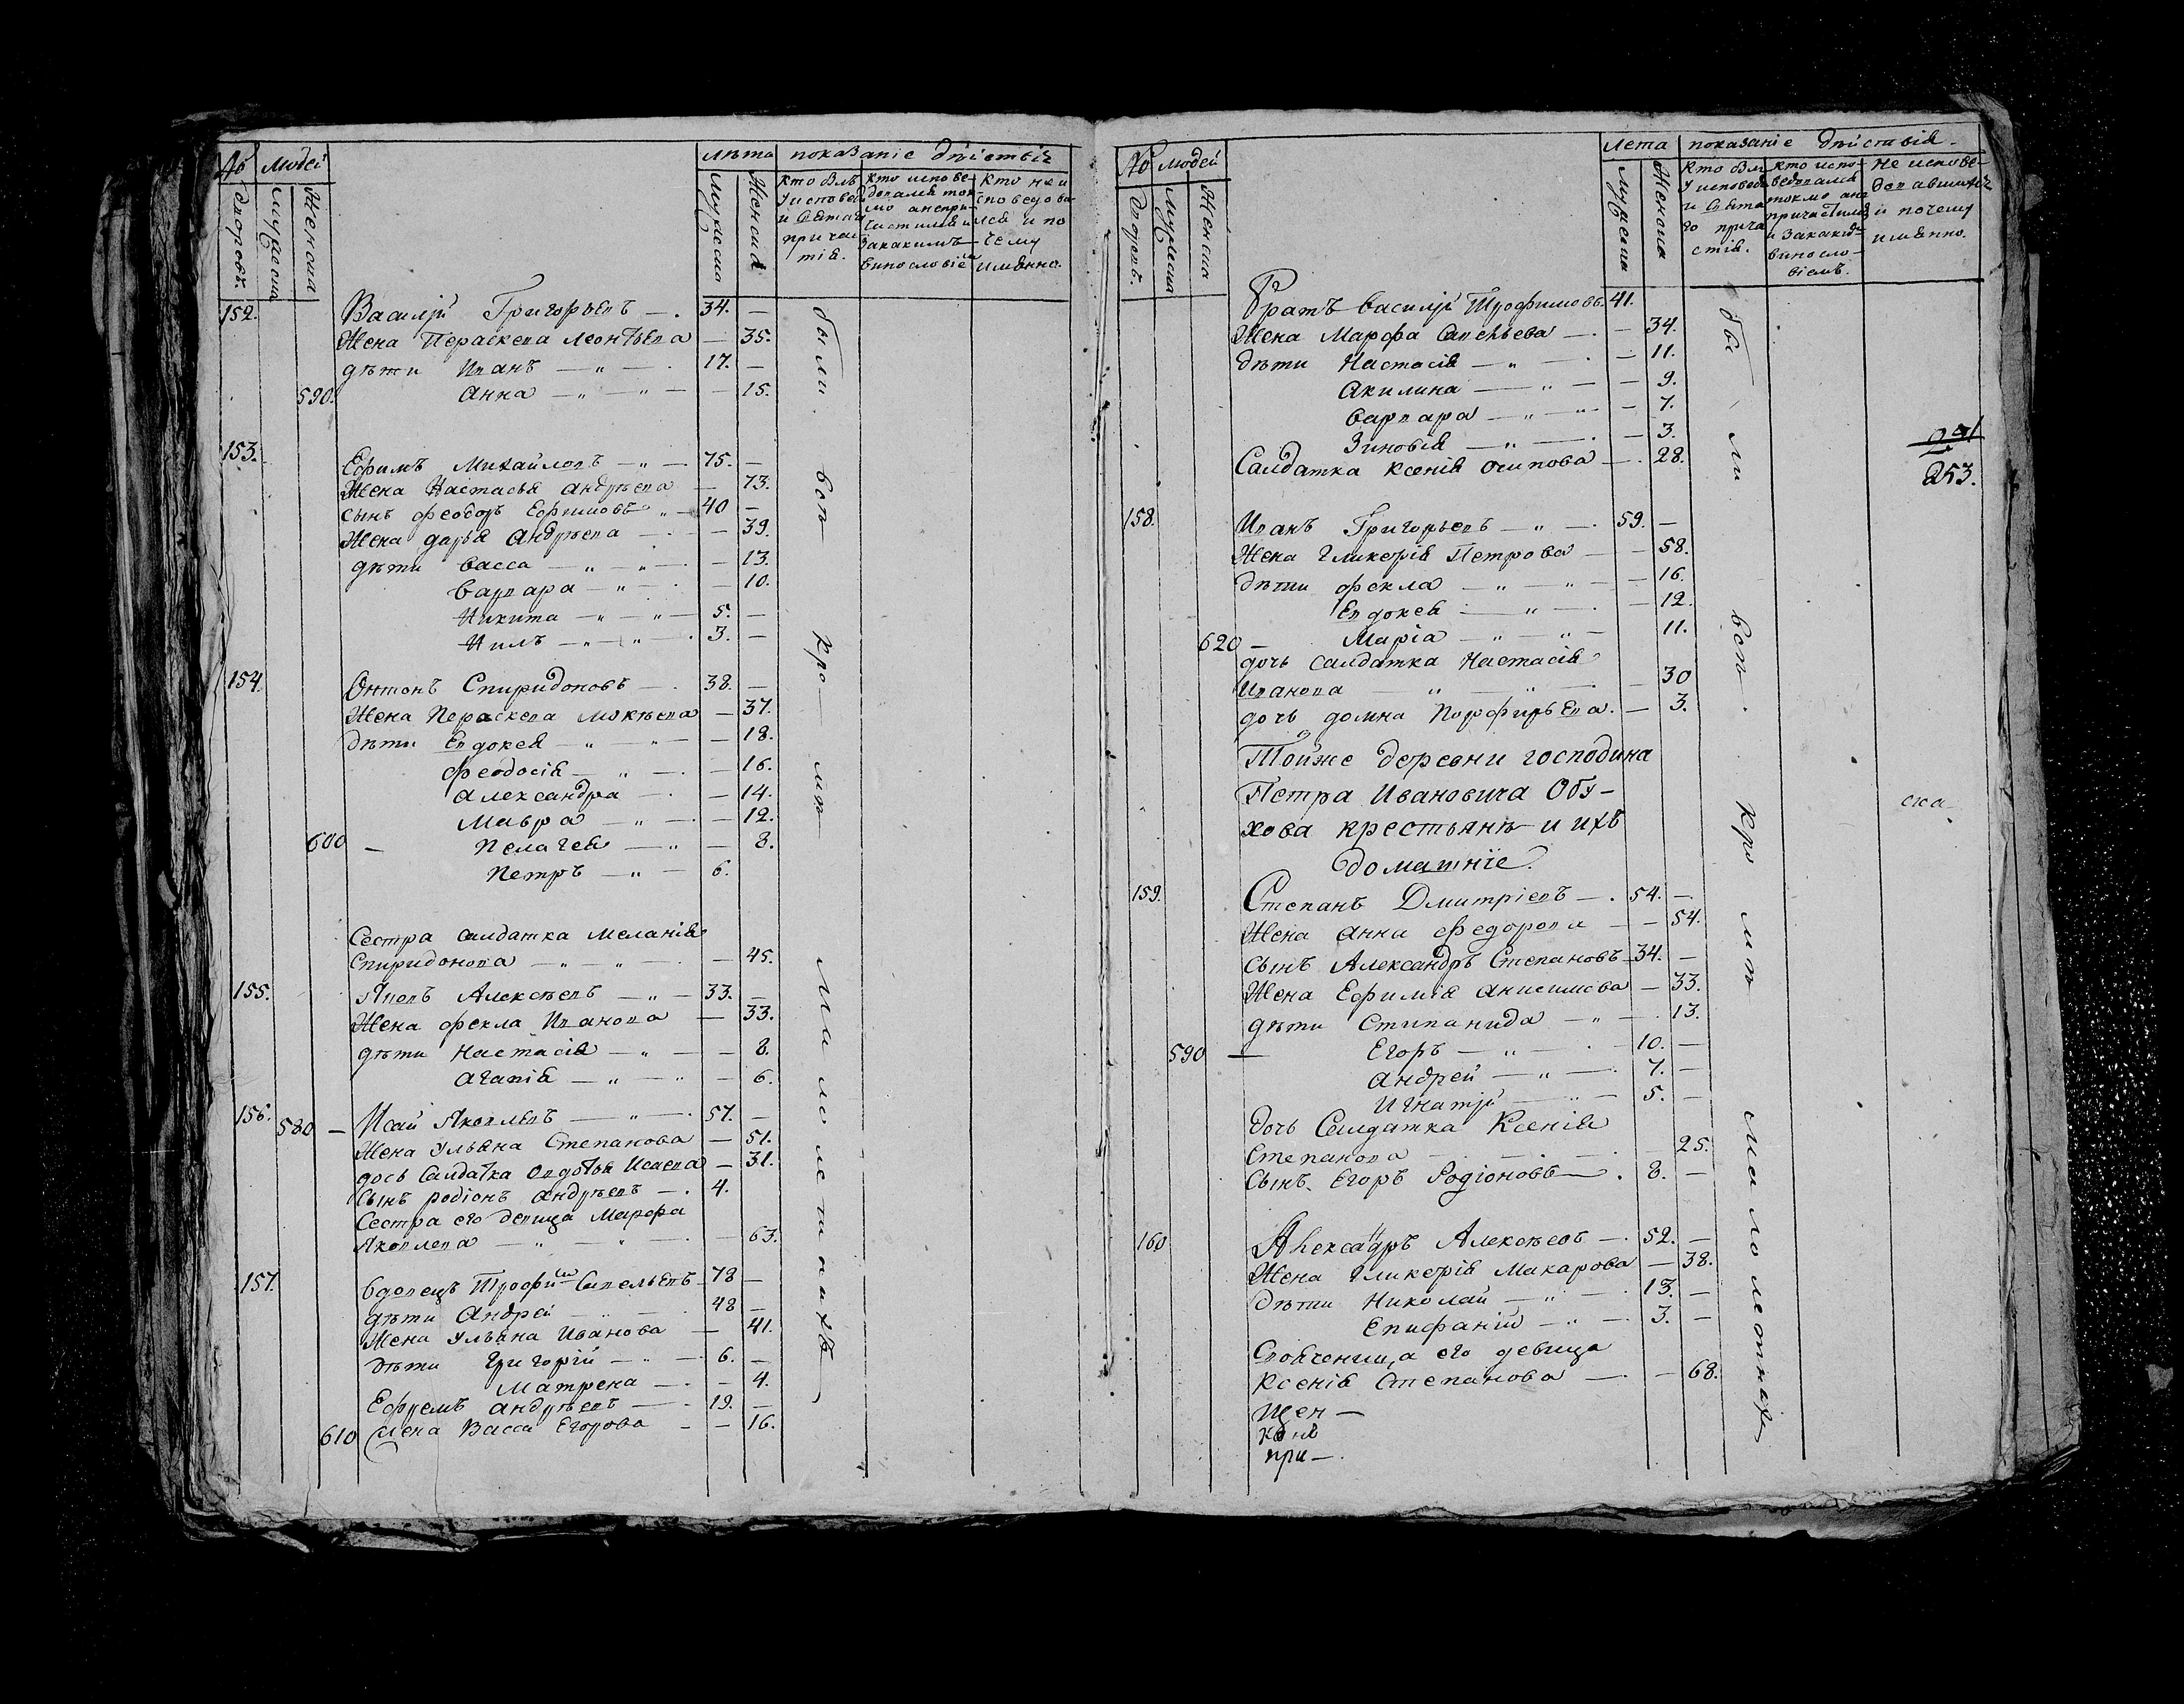 № людей лѣта показаніе дѣйствіе
дворовъ. мужеска женска мужеска женска
Кто былъ у исповеди и святаго причастія.
кто исповедовался токмо а не причастился и за какимъ винословіемъ
кто не исповедовался и по чему имянно.
152. Василій Григорьевъ — 34. —
Жена Пераскева Леонтьева — 35.
дѣти Иванъ — 17. —
590. Анна — 15.
153. Ефимъ Михайловъ — 75. —
Жена Настасья Андрѣева — 73.
сынъ Феодоръ Ефимовъ — 40 —
Жена дарья Андрѣева — 39.
дѣти Васса — 13.
Варвара — 10.
Никита — 5. —
Нилъ — 3. —
154. Онтонъ Спиридоновъ — 38. —
Жена Пераскева Мокѣева — 37.
дѣти Евдокея — 18.
Феодосія — 16.
Александра — 14.
Мавра — 12.
600 — Пелагея — 8.
Петръ — 6.
Сестра салдатка Меланія
Спиридонова — 45.
155. Алексѣевъ — 33. —
Жена Фекла Иванова — 33.
дѣти Настасія — 8.
Агапія — 6.
156. 580 — Исай Яковлевъ — 57. —
Жена Ульяна Степанова — 51.
дочь Салдатка Овдотья Исаева — 31.
Сынъ родіонъ Андрѣевъ — 4.
Сестра его девица Марфа
Яковлева — 63.
157. вдовецъ Трофимъ Савельевъ 78 —
дѣти Андрей — 48 —
Жена Ульяна Иванова — 41.
дѣти Григорій — 6. —
Матрена — 4.
Ефремъ Андрѣевъ — 19. —
610 Жена Васса Егорова — 16.
были воп кро мѣ малолетнахъ
№ людей лета показаніе дѣйствія.
дворовъ. мужеска женска мужеска женска
кто былъ у исповеди и святаго причастія.
кто исповедовался токмо а не причастился и за какимъ винословіемъ.
не исповедовавшихся и почему имянно.
Братъ Василій Трофимовъ. 41.
Жена Марфа Савельева — 34.
дѣти Настасія — 11.
Акилина — 9.
Варвара — 7.
Зиновія — 3.
Салдатка Ксенія Осипова — 28.
253.
158. Иванъ Григорьевъ — 59. —
Жена Гликерія Петрова — 58.
дѣти Фекла — 16.
Евдокея — 12.
620 — Марія — 11.
дочь салдатка Настасія
Иванова — 30
дочь домна Порфирьева. — 3.
Тойже деревни господина
Петра Ивановича Обу-
хова крестьянъ и ихъ
доматніе.
159. Степанъ Дмитріевъ — 54. —
Жена Анна Федорова — 54.
Сынъ Александръ Степановъ 34. —
Жена Ефимія Анисимова — 33.
дѣти Стипанида — 13.
590 — Егоръ — 10. —
Андрей — 7. —
Игнатій — 5. —
дочь Салдатка Ксенія
Степанова 25.
Сынъ Егоръ Родіоновъ — 8. —
160 Александръ Алексѣевъ — 52. —
Жена Гликерія Макарова — 38.
дѣти Николай — 13. —
Епифаній — 3. —
его девица
Ксенія Степанова — 68.
щен —
при —.
бы ли воп. кро мѣ малолетных
ска